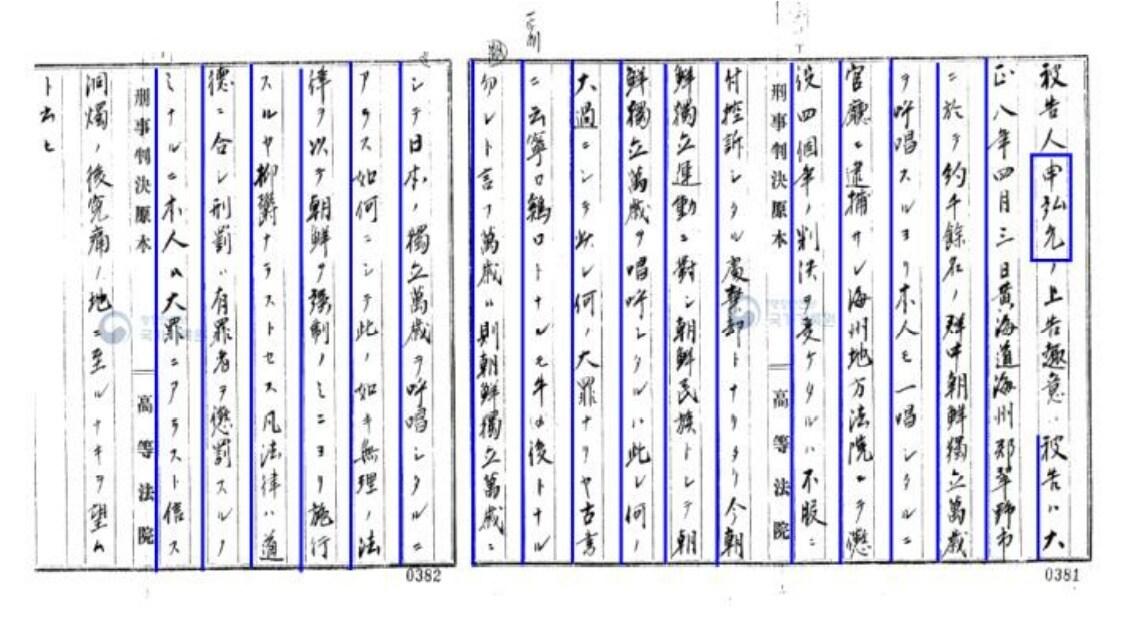 被告人申弘允ノ上告趣意ハ被告ハ大
正八年四月三日黄海道海州郡翠野市
ニ於テ約千餘名ノ群中朝鮮獨立萬歳
ヲ呼唱スルヨリ本人モ一唱シタルニ
官廳ニ逮捕サレ海州地方法院ニテ懲
役四個年ノ判決ヲ受ケタルハ不服ニ
刑事判決原本 高等法院
付控訴シタル處棄却トナリタリ今朝
鮮獨立運動ニ對シ朝鮮民族トシテ朝
鮮獨立萬歳ヲ唱呼シタルハ此レ何ノ
大過ニシテ此レ何ノ大罪ナリヤ古書
ニ云寧ロ鶏口トナルモ牛後トナル
勿レト言フ萬歳ハ則朝鮮獨立萬歳ニ
0381
シテ日本ノ獨立萬歳ヲ呼唱シタルニ
アラス如何ニシテ此ノ如キ無理ノ法
律ヲ以テ朝鮮ヲ強制ノミニヨリ施行
スルヤ抑欝ナラストセス凡法律ハ道
德ニ合シ刑罰ハ有罪者ヲ懲罰スルノ
ミナルニ本人ハ大罪ニアラスト信ス
刑事判決原本 高等法院
洞燭ノ後寃痛ノ地ニ至ルナキヲ望ム
ト云ヒ
0382